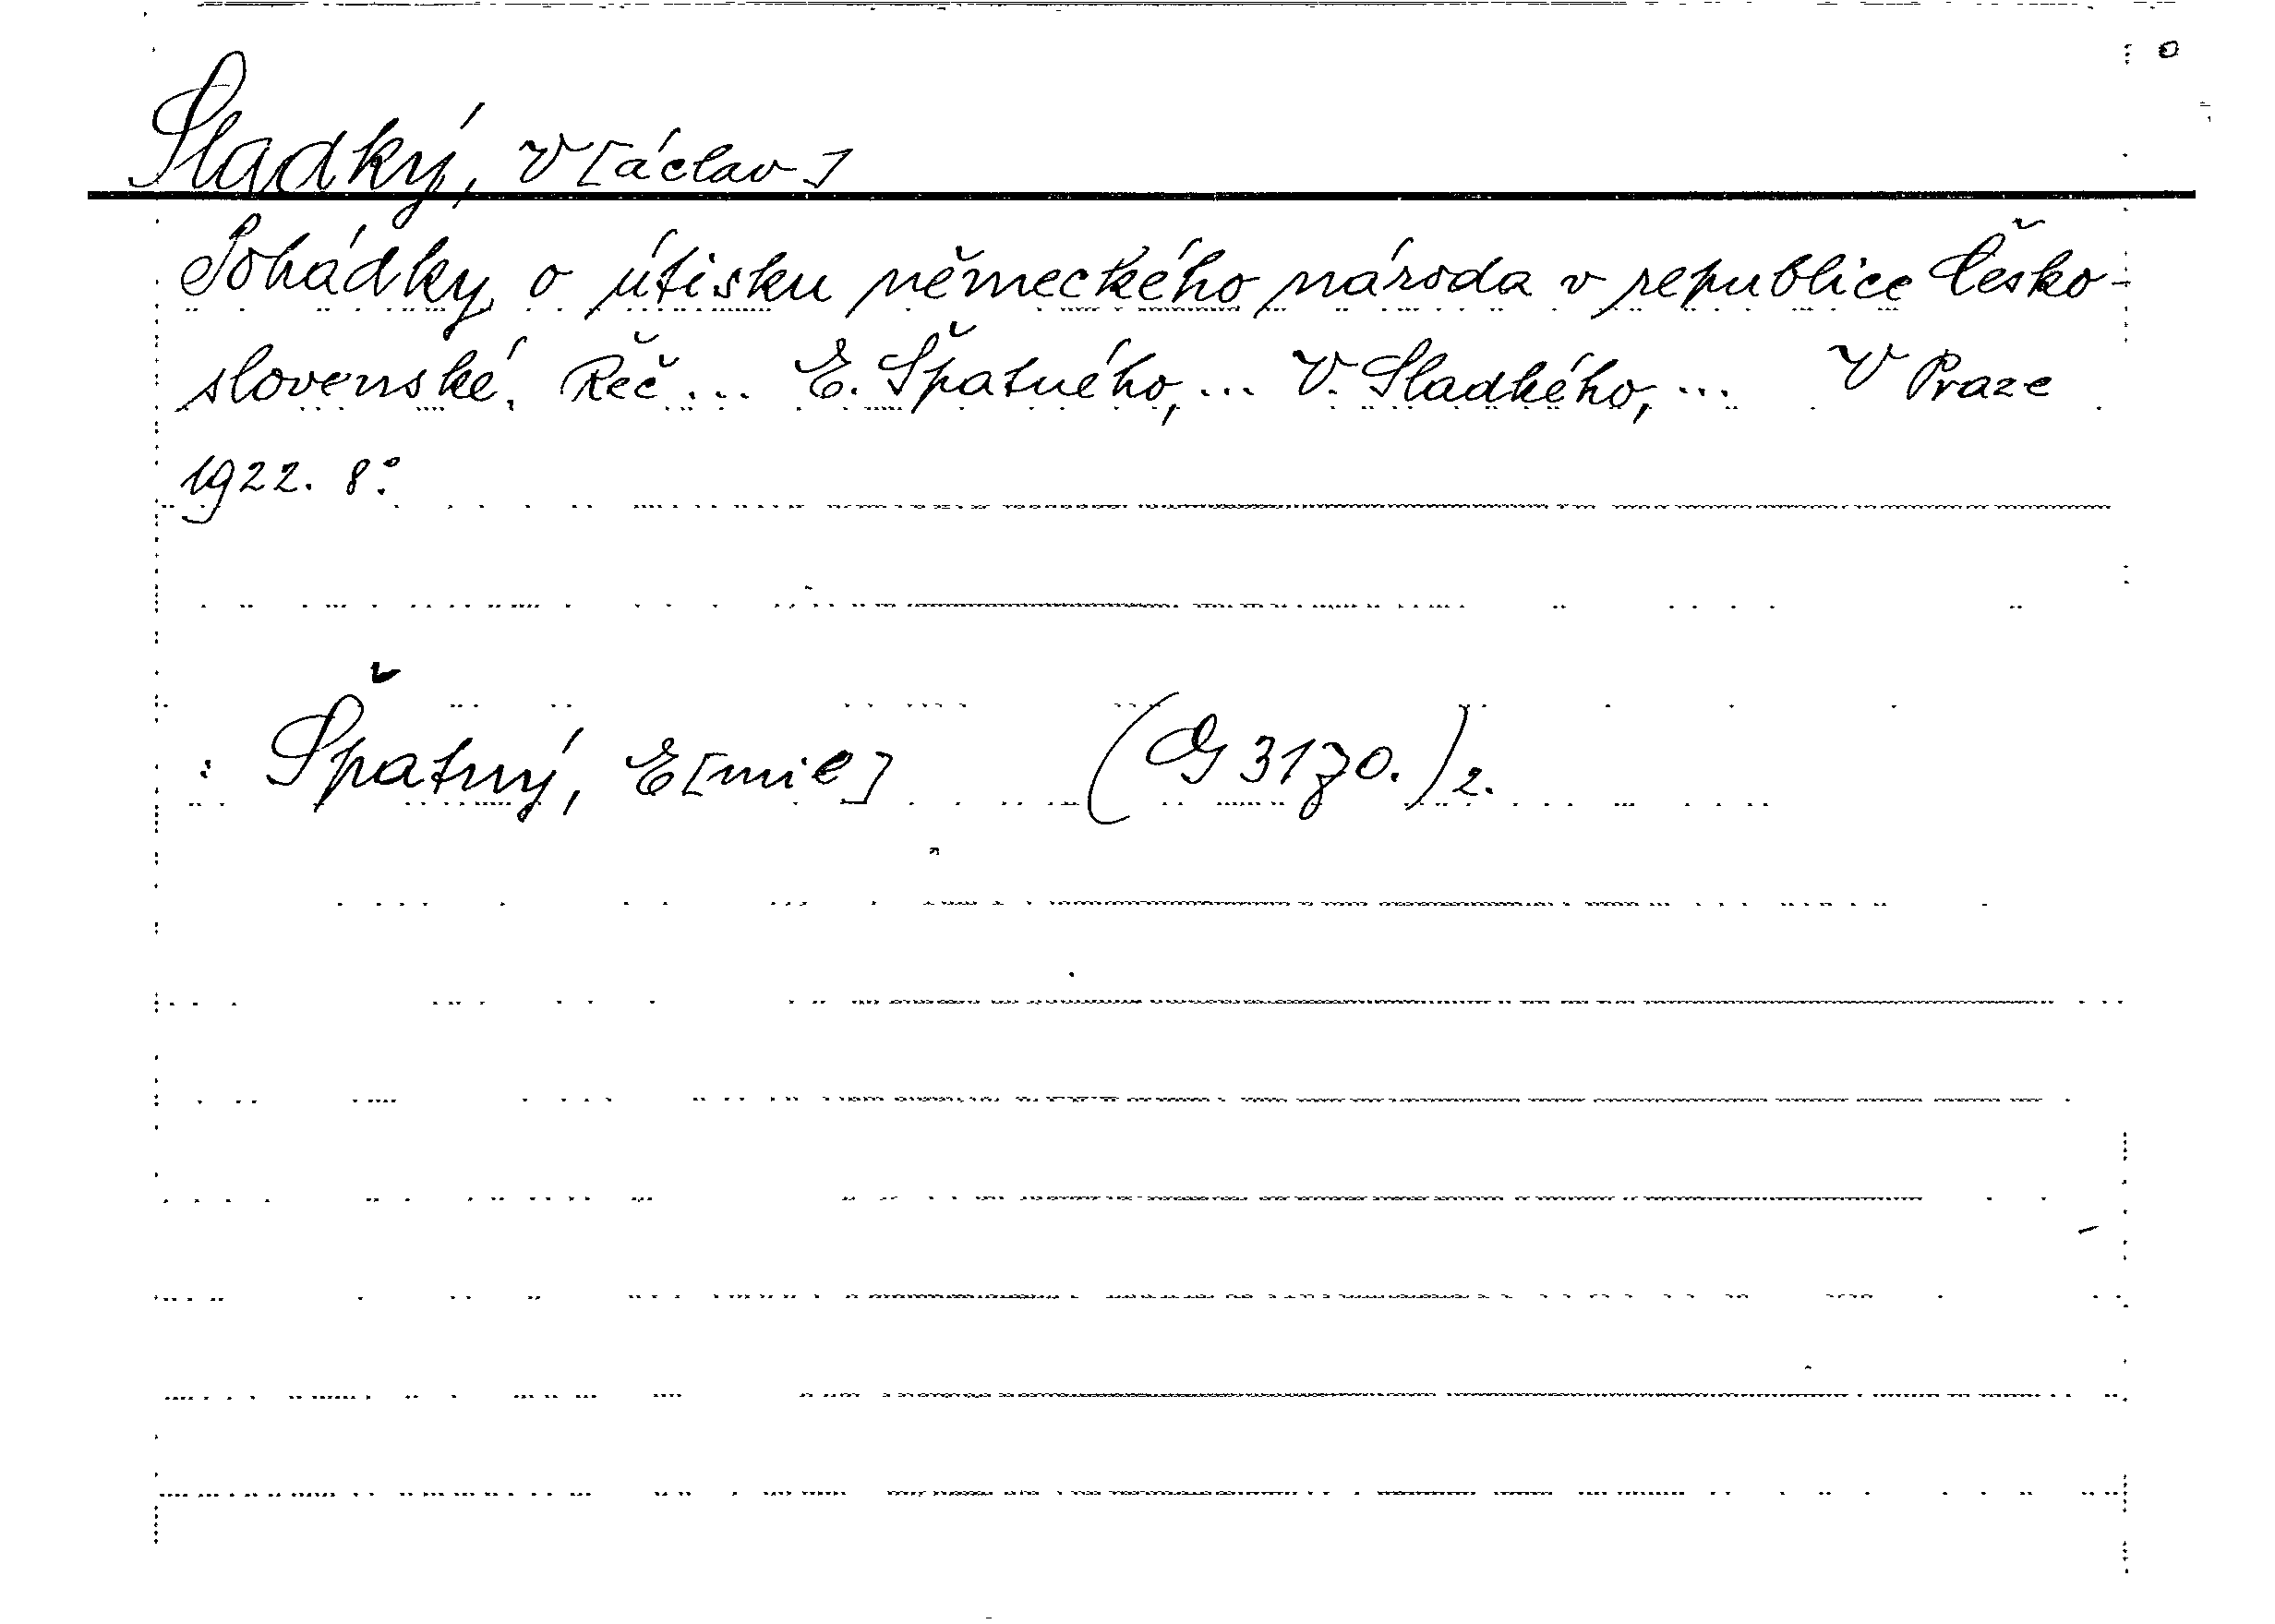 Sladký, V[áclav]
Pohádky o útisku německého národa v republice Česko-
slovenské. Řeč... E. Špatného, ... V. Sladkého, ... V Praze
1922. 8°.
: Špatný, E[mil] (G 3170.)2.